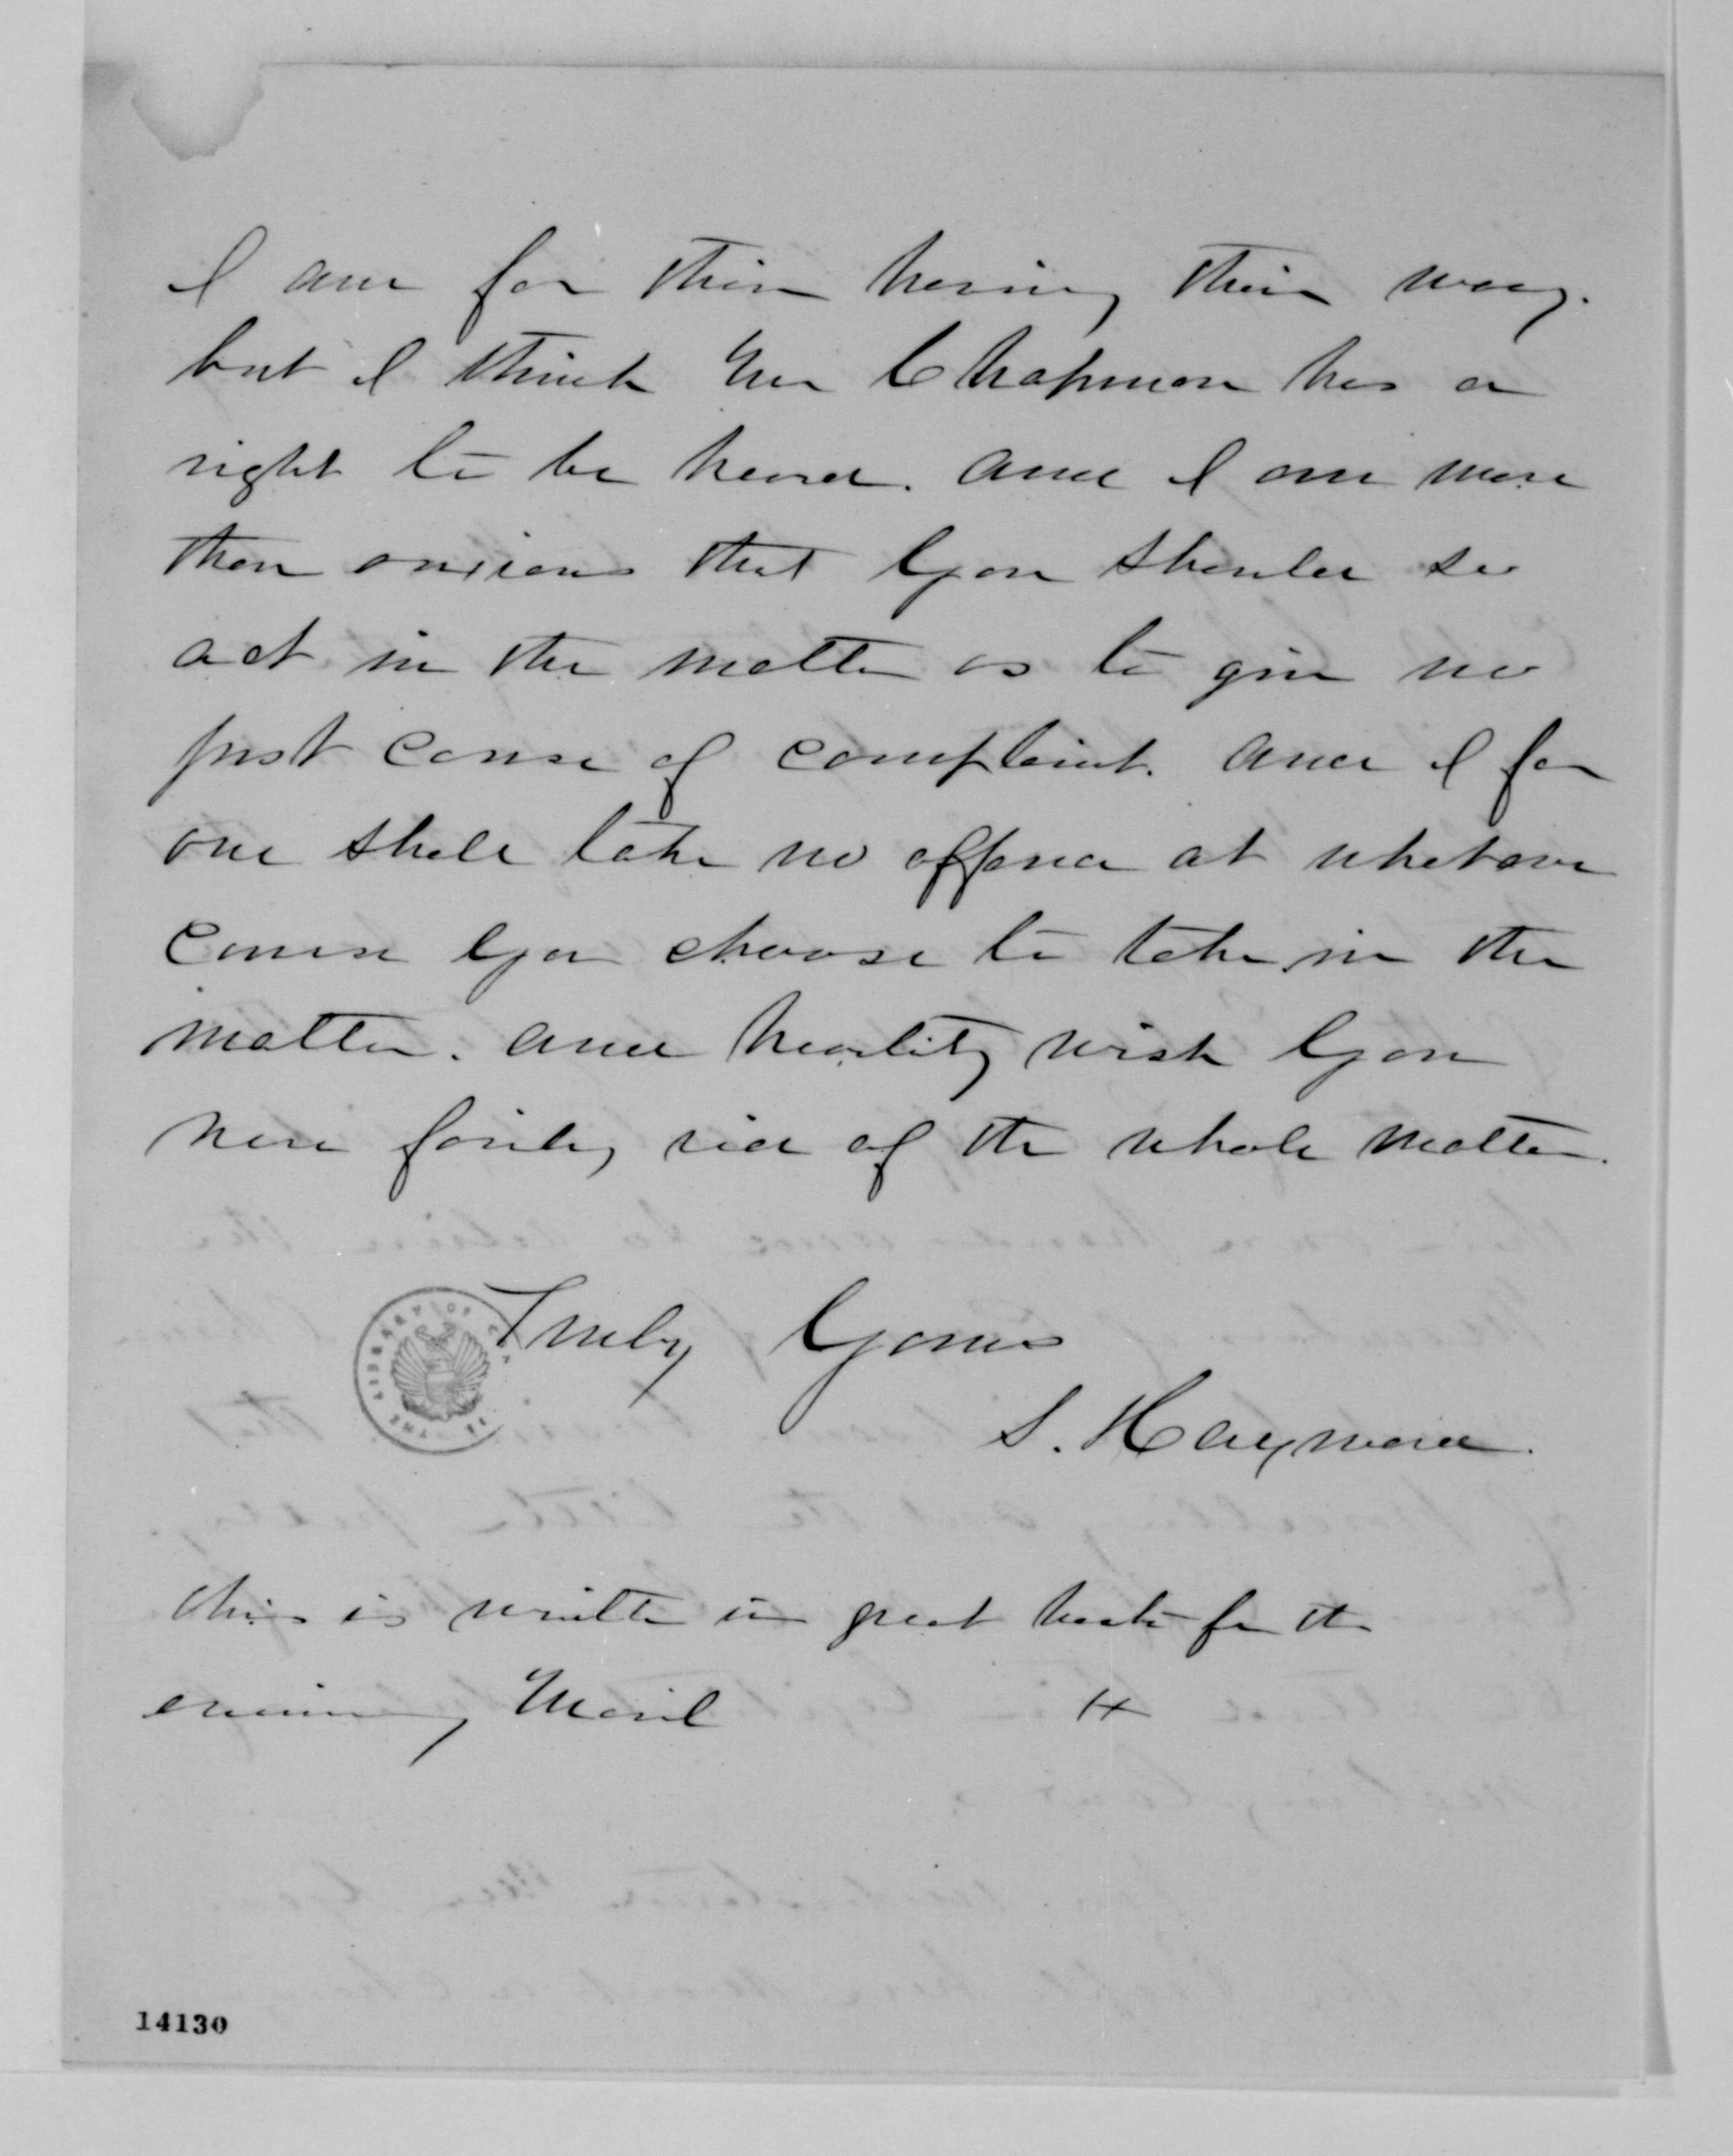 I am for their having their way.
but I think Mr Chapman has a
right to be heard. and I am more
than anxious that you should so
act in the matter as to give no
just cause of complaint. and I for
one shall take no offence at whatever
course you choose to take in the
matter. and heartily wish you
were fairly rid of the whole matter.
Truly Yours
S. Hayward.
THE LIBRARY OF
this is written in great haste for the
evening Mail H
14130